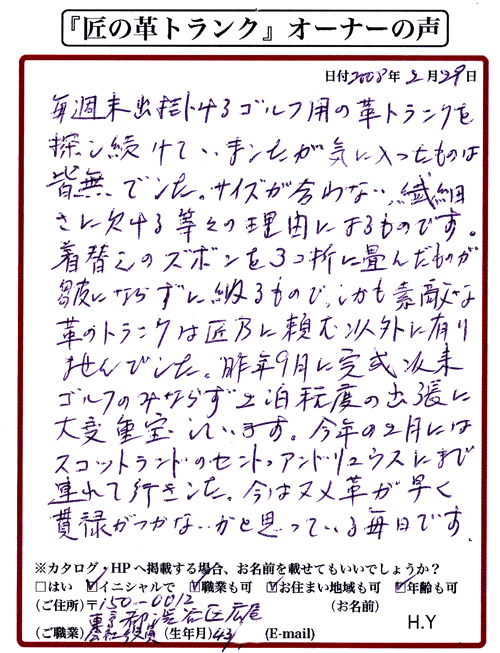 『匠の革トランク』オーナーの声
日付2008年 2月29日
毎週末出掛けるゴルフ用の革トランクを
探し続けていましたが気に入ったものは
皆無でした。サイズが合わない、繊細
さに欠ける等々の理由によるものです。
着替えのズボンを3つ折に畳んだものが
皺にならずに収るもので、しかも素敵な
革のトランクは匠乃に頼む以外に有り
ませんでした。昨年9月に完成以来
ゴルフのみならず2泊程度の出張に
大変重宝しています。今年の2月には
スコットランドのセント・アンドリュウスにまで
連れて行きした。今はヌメ革が早く
貫禄がつかないかと思っている毎日です。
※カタログ・HPへ掲載する場合、お名前を載せてもいいでしょうか?
□はい ☑イニシャルで ☑職業も可 ☑お住まい地域も可 ☑年齢も可
(ご住所)〒150-0012 (お名前)
東京都渋谷区広尾 H.Y
(ご職業)会社役員 (生年月) 43 (E-mail)